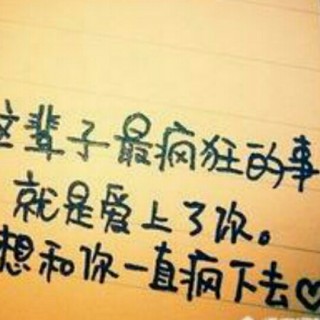 这辈子最疯狂的事
就是爱上了你。
想和你一直疯下去♡